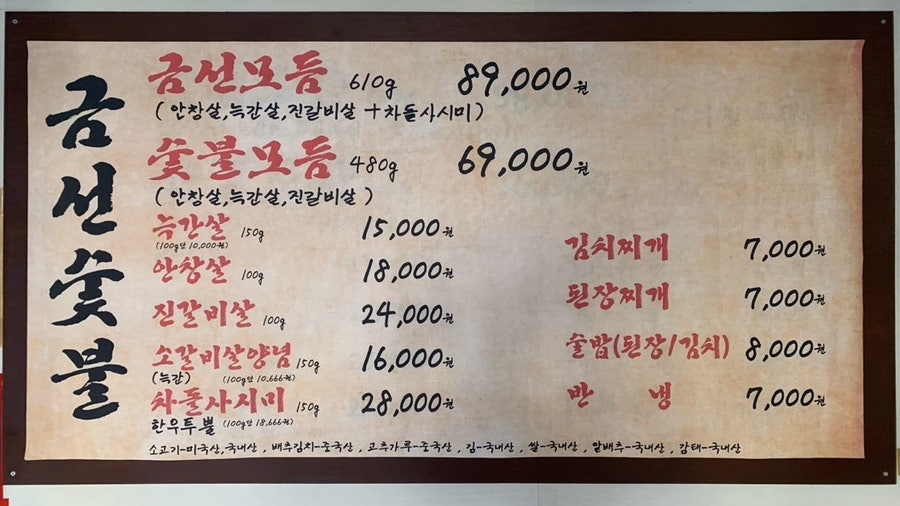 금선숯불
금선모듬 610g 89,000원
( 안창살,늑간살,진갈비살 +차돌사시미)
숯불모듬 480g 69,000원
( 안창살,늑간살,진갈비살 )
늑간살 150g 15,000원
(100g당 10,000원)
안창살 100g 18,000원
진갈비살 100g 24,000원
소갈비살양념 150g 16,000원
(늑간) (100g당 10,666원)
차돌사시미 150g 28,000원
한우투뿔 (100g당 18,666원)
김치찌개 7,000원
된장찌개 7,000원
술밥(된장/김치) 8,000원
반 냉 7,000원
소고기-미국산,국내산 , 배추김치-중국산 , 고추가루-중국산 , 김-국내산 , 쌀-국내산 , 알배추-국내산 , 감태-국내산